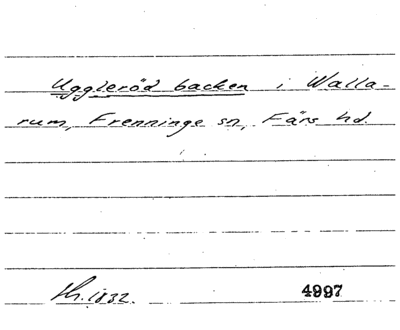 Uggleröd backen i Walla-
rum, Frenninge sn, Färs hd.
1832. 4997